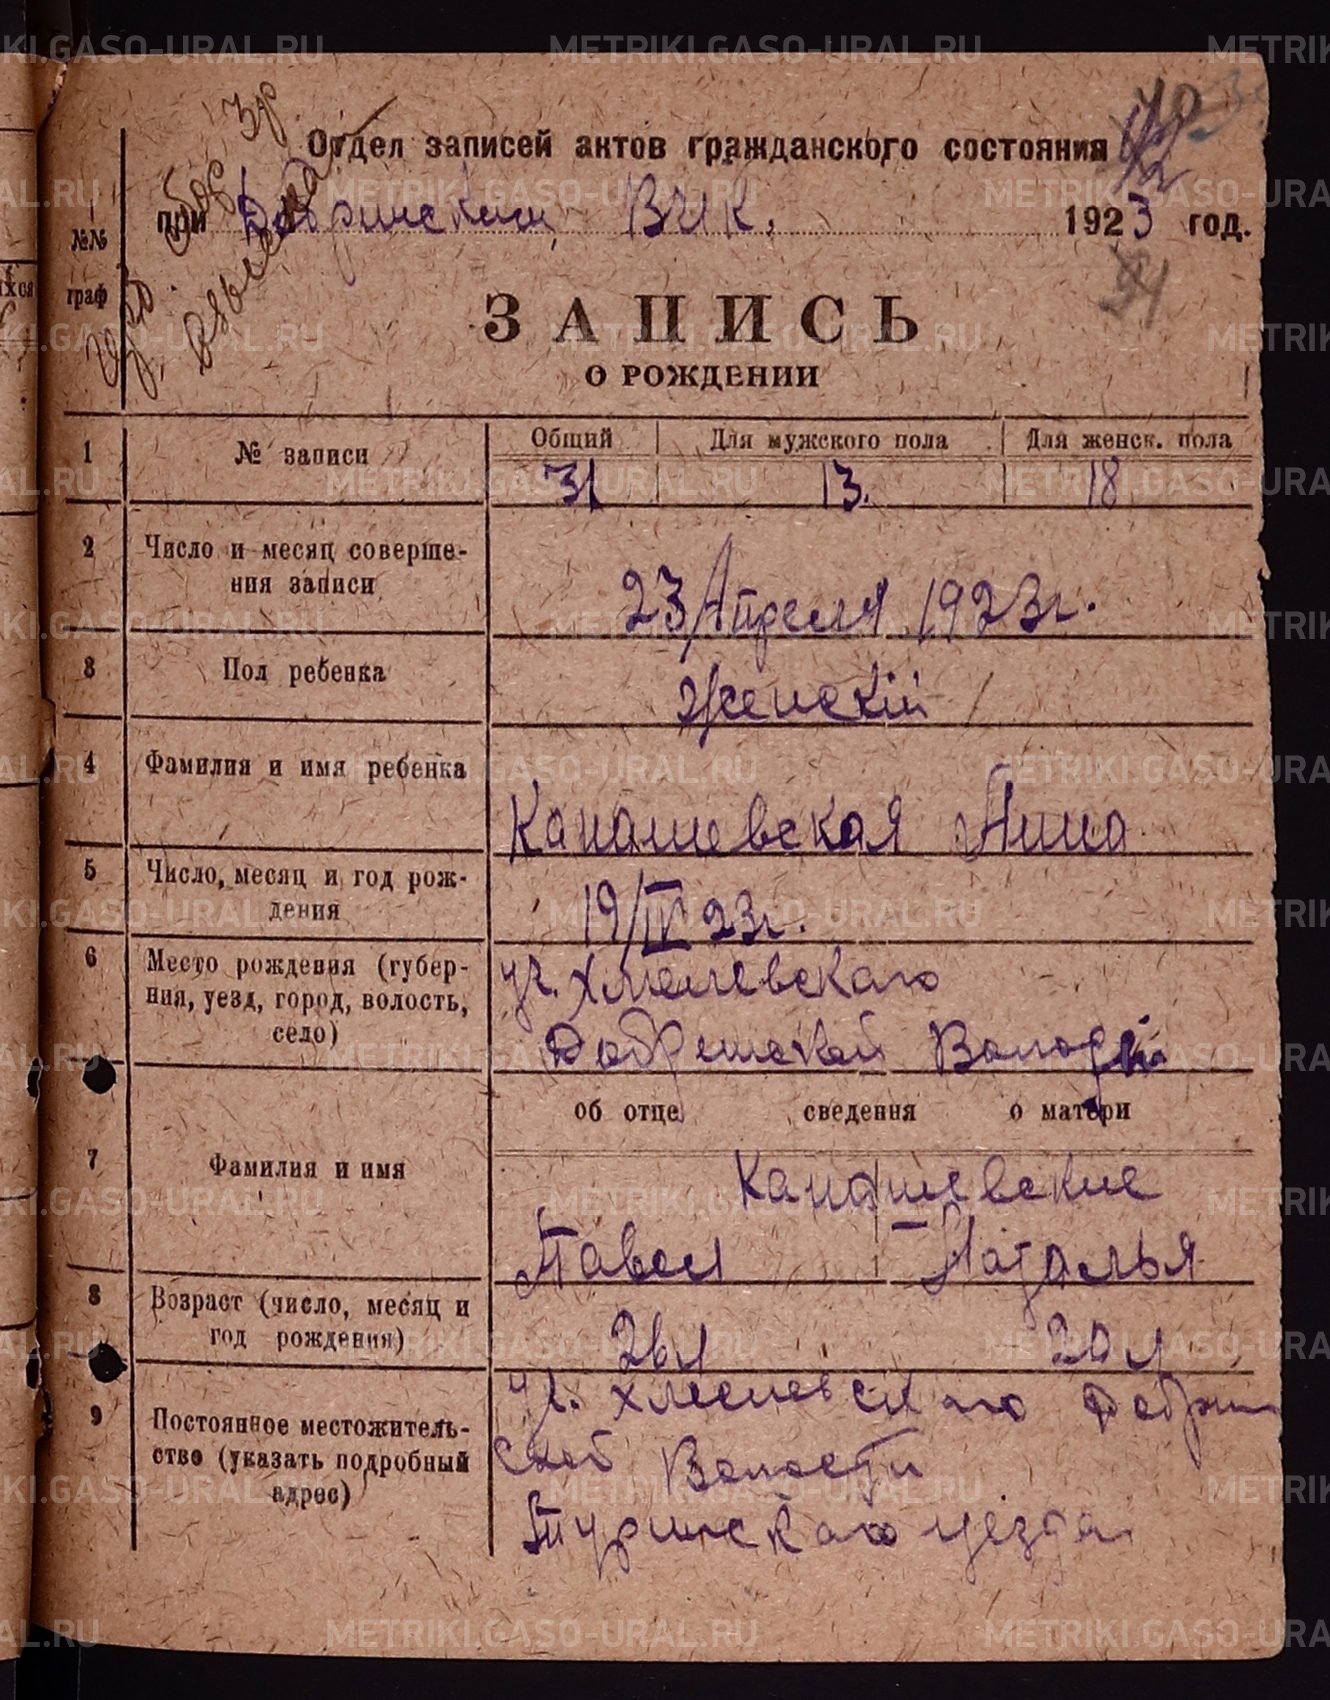 METRIKI.GASO-URAL.RU
Отдел записей актов гражданского состояния
при Добринским ВИК. 1923 год.
№№ граф
ЗАПИСЬ
О РОЖДЕНИИ
Общий Для мужского пола Для женск. пола
1 № записи 31 13. 18
2 Число и месяц соверше-
ния записи 23 Апреля 1923 г.
3 Пол ребенка Женскій
4 Фамилия и имя ребенка Канашевская Анна
5 Число, месяц и год рож-
дения 19/IV 23 г.
6 Место рождения (губер-
ния, уезд, город, волость,
село)
уч. Хмелевскаго
Добринской Волости
об отце сведения о матери
7 Фамилия и имя Канашевские
Павел Наталья
8 Возраст (число, месяц и
год рождения) 26 л 20 л
9 Постоянное местожитель-
ство (указать подробный
адрес)
уч. Хмелевскаго Добрин
ской Волости
Туринскаго уезда